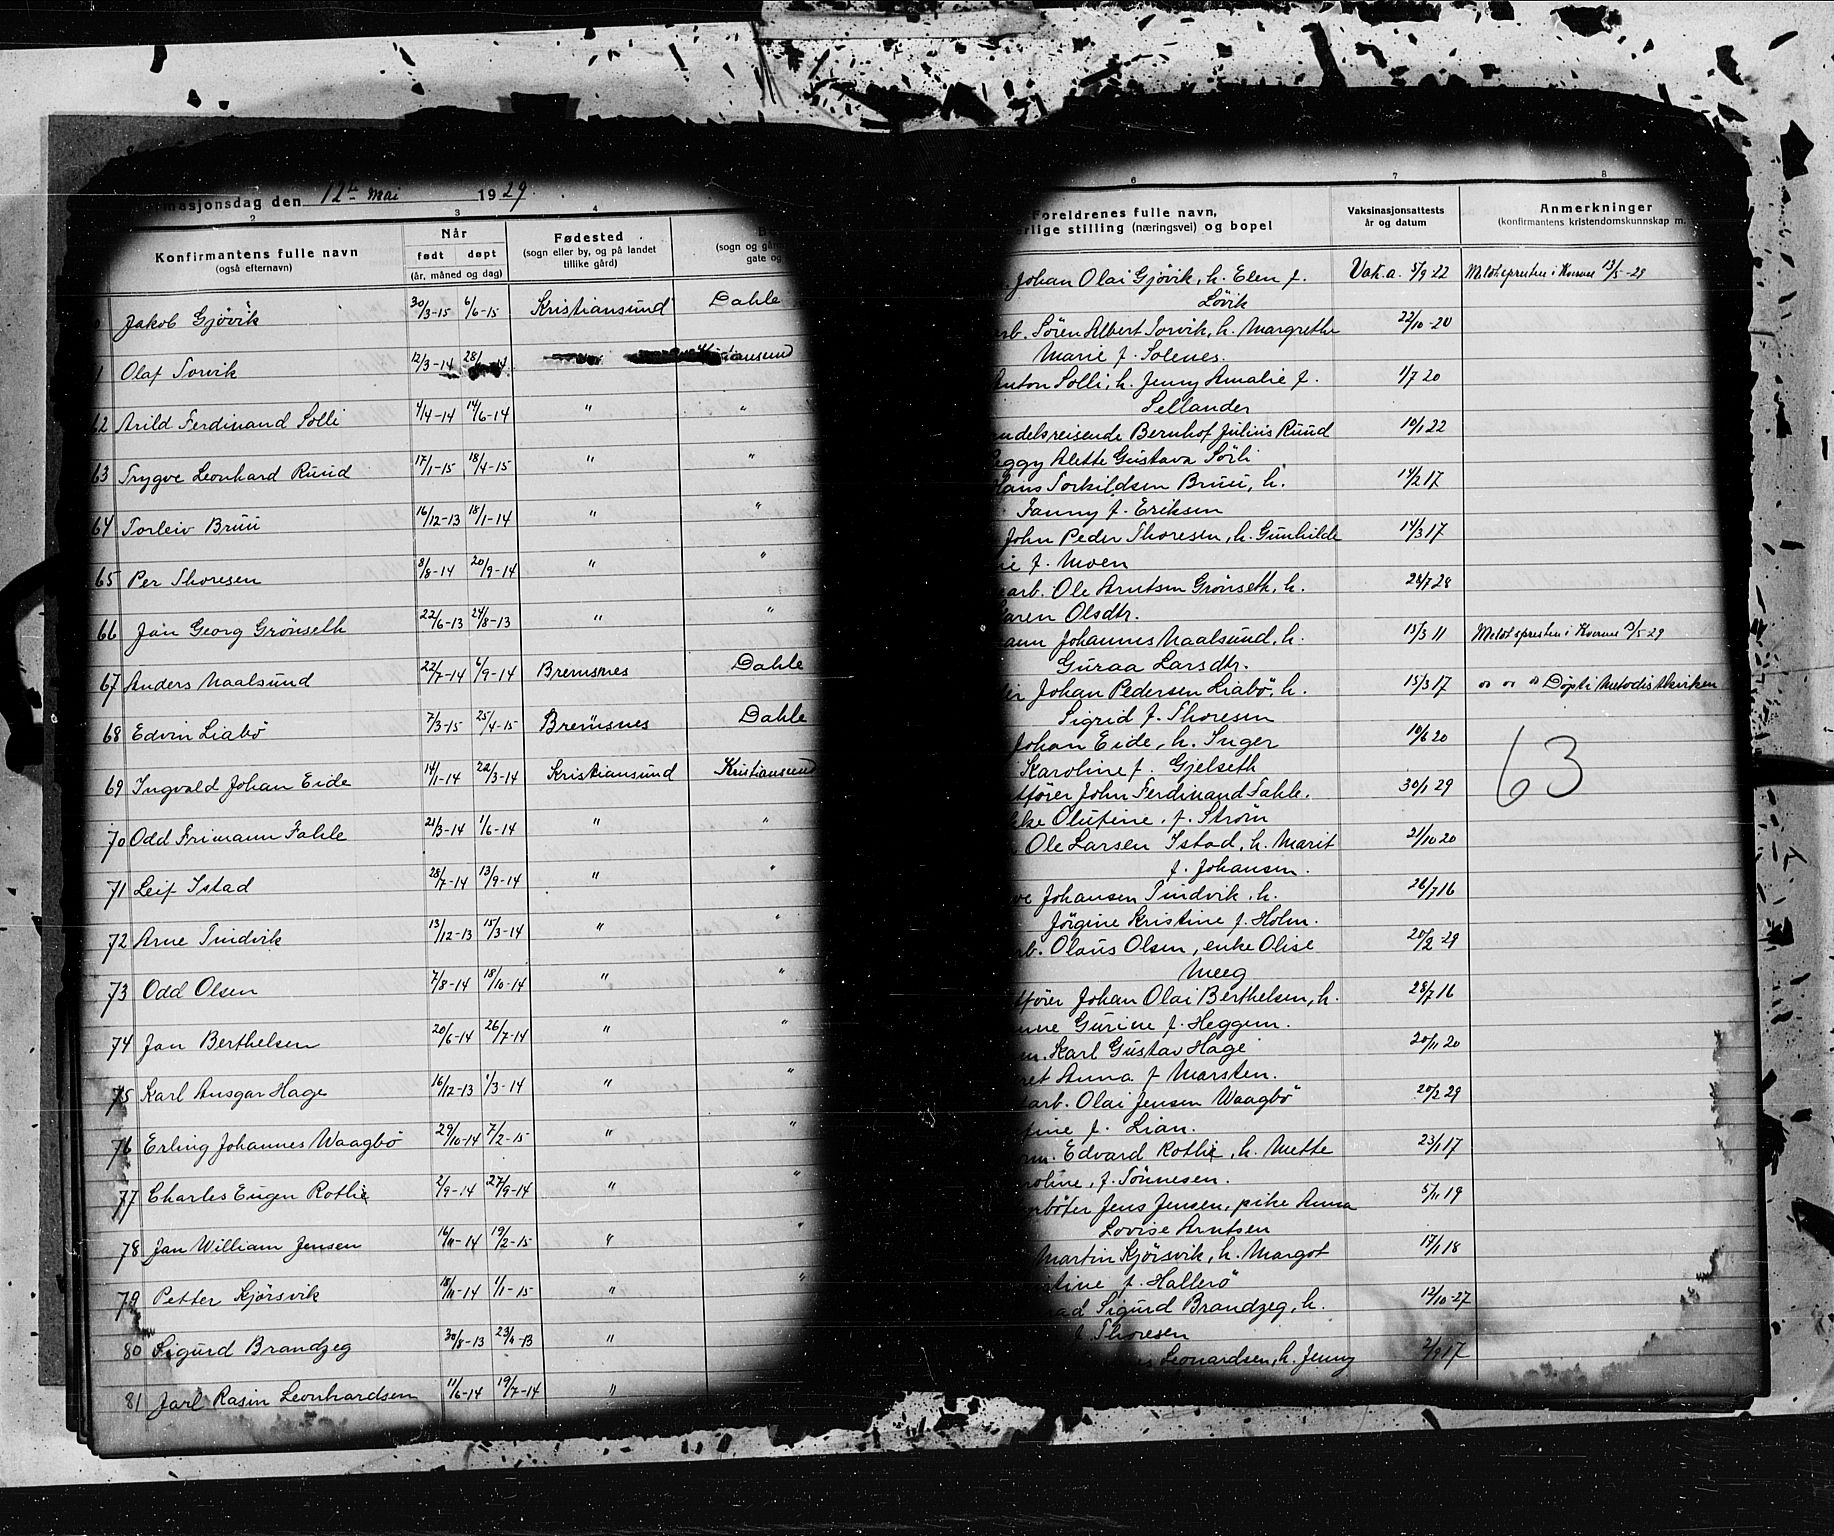 masjonsdag den 12te mai 1929.
2 3 4
Konfirmantens fulle navn
(også efternavn)
Når
født døpt
(år, måned og dag)
Fødested
(sogn eller by, og på landet
tillike gård)
(sogn og
gate og
Jakob Gjövik 30/3-15 6/6-15 Kristiansund Dahle
Olaf Torvik 12/3-14
62 Arild Ferdinand Solli 4/4-14 14/6-14 " "
63 Trygve Leonhard Ruud 17/1-15 18/4-15 " "
64 Torleiv Bruu 16/12-13 18/1-14 " "
65 Per Thoresen 8/8-14 20/9-14 " "
66 Jan Georg Grönseth 22/6-13 24/8-13 " "
67 Anders Naalsund 22/7-14 6/9-14 Bremsnes Dahle
68 Edvin Liabö 7/3-15 25/4-15 Bremsnes Dahle
69 Ingvald Johan Eide 14/1-14 22/3-14 Kristiansund Kristiansund
70 Odd Frimann Fahle 21/3-14 1/6-14 " "
71 Leif Istad 28/7-14 13/9-14 " "
72 Arne Tindvik 13/12-13 15/3-14 " "
73 Odd Olsen 7/8-14 18/10-14 " "
74 Jan Berthelsen 20/6-14 26/7-14 " "
75 Karl Ansgar Hage 16/12-13 1/3-14 " "
76 Erling Johannes Waagbö 29/10-14 7/2-15 " "
77 Charles Eugen Rothe 2/9-14 27/9-14 " "
78 Jan William Jensen 16/11-14 19/2-15 " "
79 Petter Kjörsvik 18/11-14 1/1-15 " "
80 Sigurd Brandzeg 30/8-13 "
81 Jarl Rasin Leonhardsen 11/6-14 19/7-14 "
6 7 8
Foreldrenes fulle navn,
rlige stilling (næringsvei) og bopel
Vaksinasjonsattests
år og datum
Anmerkninger
(konfirmantens kristendomskunnskap m.
Johan Olai Gjövik, h. Elen f. Vak.a. 5/9 22 Meldt presten i Kvernes 13/5-29
Lövik
arb. Sören Albert Torvik, h. Margrethe 22/10-20
Marie f. Solenes.
Anton Solli, h. Jenny Amalie f. 1/7 20
Sellander
ndelsreisende Bernhof Julius Ruud 10/1 22
eggy Alette Gustava Sörli
Hans Torkildsen Bruu, h. 14/2 17
Fanny f. Eriksen
John Peder Thoresen, h. Gunhilde 14/3 17
ie f. Moen
arb. Ole Arntsen Grönseth, h. 28/7 28
Karen Olsdtr.
ann Johannes Naalsund, h. 15/3 11 Meldt presten i Kvernes 13/5-29
Guraa Larsdtr.
Johan Pedersen Liabö, h. 15/3 17 " " " Døpt i Metodistkirken
Sigrid f. Thoresen
Johan Eide, h. Inger 10/6 20
Karoline f. Gjelseth
63
tfører John Ferdinand Fahle. 30/1 29
kke Olufine f. Ström
Ole Larsen Istad, h. Marit 21/10 20
f. Johansen.
Johansen Tindvik, h. 26/7 16
Jörgine Kristine f. Holm.
arb. Olaus Olsen, enke Olise 20/2-29
Meeg
tfører Johan Olai Berthelsen, h. 28/7 16
nne Gurine f. Heggem.
m. Karl Gustav Hage 20/11 20
ret Anna f Marsten.
arb. Olai Jensen Waagbö 20/2 29
tine f. Lian.
rm. Edvard Rothe, h. Mette 23/1 17
roline, f. Tönnesen.
nböter Jens Jensen, pike Anna 5/11 19
Lovise Arntsen
Martin Kjörsvik, h. Margot 17/1 18
tine f. Hallerö
Sigurd Brandzeg, h. 12/10-27
f Thoresen
Leonardsen, h. Jenny 2/9 17